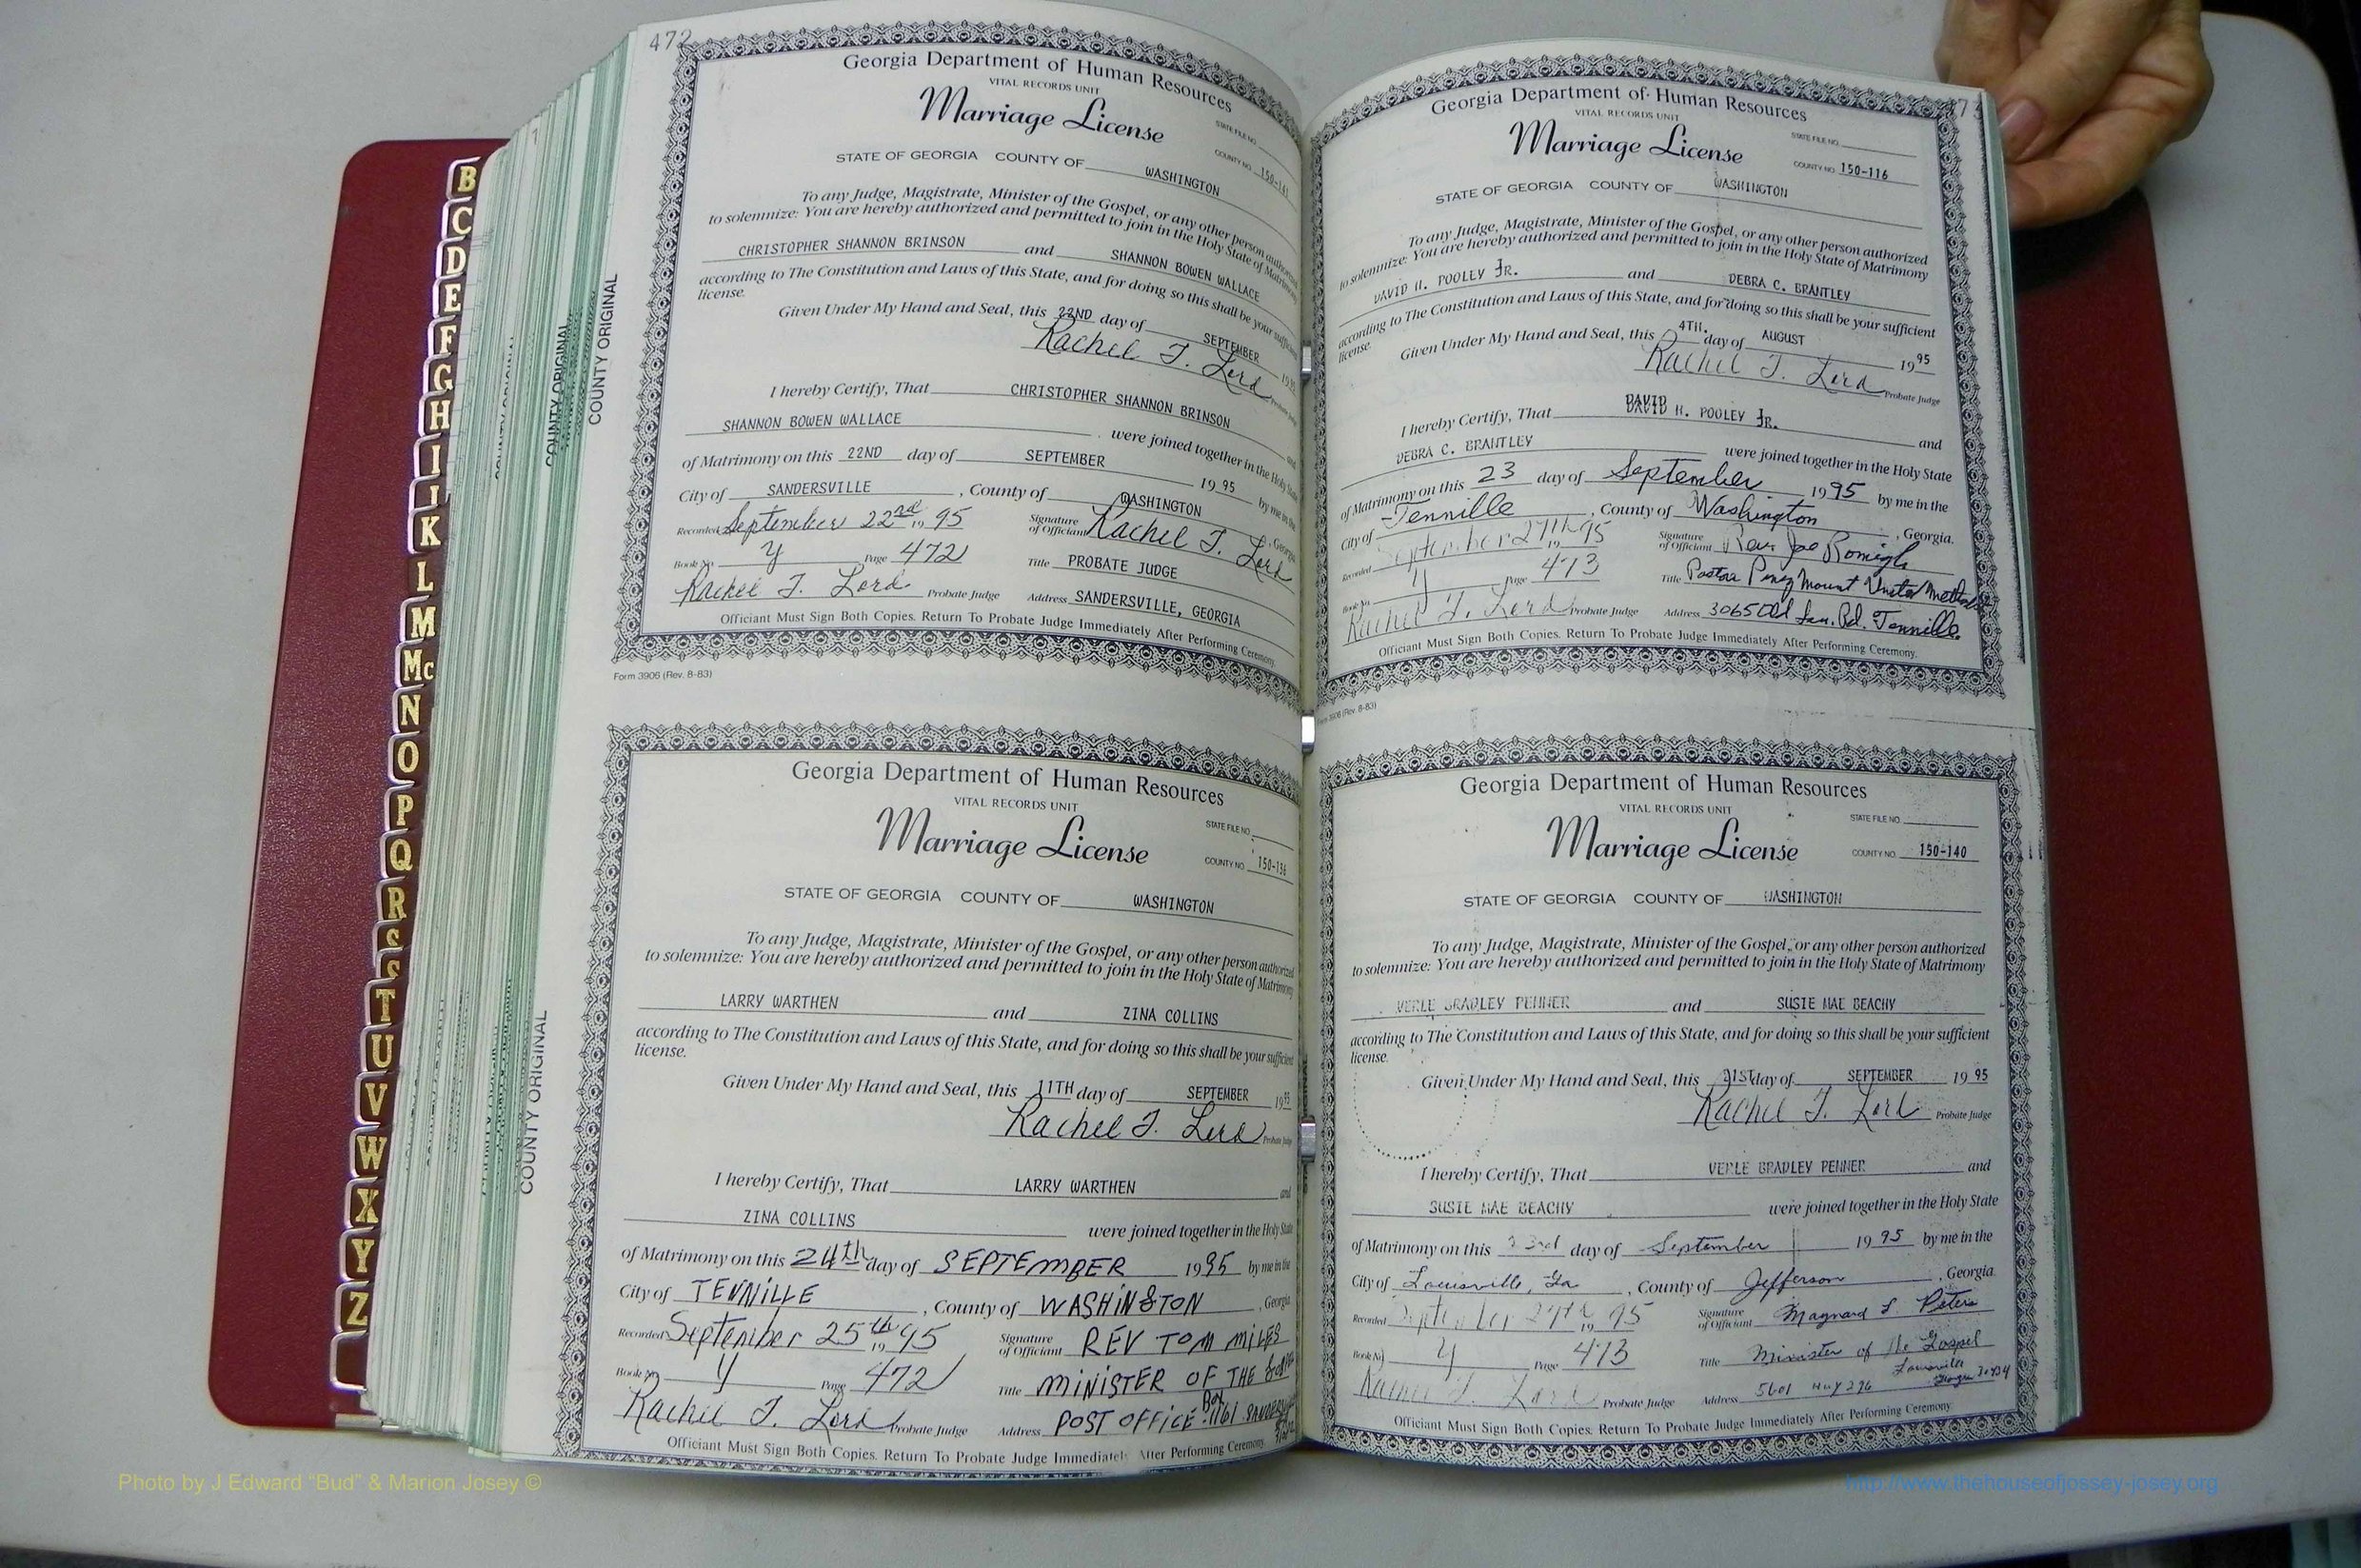 472
Georgia Department of Human Resources
VITAL RECORDS UNIT
Marriage License
STATE FILE NO.
COUNTY NO.
STATE OF GEORGIA COUNTY OF WASHINGTON
To any Judge, Magistrate, Minister of the Gospel, or any other person authorized
to solemnize: You are hereby authorized and permitted to join in the Holy State of Matrimony
CHRISTOPHER SHANNON BRINSON and SHANNON BOWEN WALLACE
according to The Constitution and Laws of this State, and for doing so this shall be your sufficient
license.
Given Under My Hand and Seal, this 22ND day of SEPTEMBER
Rachel T. Lord
I hereby Certify, That CHRISTOPHER SHANNON BRINSON and
SHANNON BOWEN WALLACE were joined together in the Holy State
of Matrimony on this 22ND day of SEPTEMBER 19 95 by me in the
City of SANDERSVILLE, County of WASHINGTON, Georgia
Recorded September 22nd 19 95 Signature of Officiant Rachel T. Lord
Book No. Y Page 472 Title PROBATE JUDGE
Rachel T. Lord Probate Judge Address SANDERSVILLE, GEORGIA
Officiant Must Sign Both Copies. Return To Probate Judge Immediately After Performing Ceremony.
Form 3906 (Rev. 8-83)
COUNTY ORIGINAL
COUNTY ORIGINAL
Georgia Department of Human Resources
VITAL RECORDS UNIT
Marriage License
STATE FILE NO.
COUNTY NO.
STATE OF GEORGIA COUNTY OF WASHINGTON
To any Judge, Magistrate, Minister of the Gospel, or any other person authorized
to solemnize: You are hereby authorized and permitted to join in the Holy State of Matrimony
LARRY WARTHEN and ZINA COLLINS
according to The Constitution and Laws of this State, and for doing so this shall be your sufficient
license.
Given Under My Hand and Seal, this 11TH day of SEPTEMBER 1995
Rachel T. Lord Probate Judge
I hereby Certify, That LARRY WARTHEN and
ZINA COLLINS were joined together in the Holy State
of Matrimony on this 24th day of SEPTEMBER 1995 by me in the
City of TENNILLE, County of WASHINGTON, Georgia
Recorded September 25th 19 95 Signature of Officiant REV TOM MILES
Book No. Y Page 472 Title MINISTER OF THE
Rachel T. Lord Probate Judge Address POST OFFICE Box 1161
Officiant Must Sign Both Copies. Return To Probate Judge Immediately After Performing Ceremony.
COUNTY ORIGINAL
Georgia Department of Human Resources
VITAL RECORDS UNIT
Marriage License
STATE FILE NO.
COUNTY NO. 150-116
STATE OF GEORGIA COUNTY OF WASHINGTON
To any Judge, Magistrate, Minister of the Gospel, or any other person authorized
to solemnize: You are hereby authorized and permitted to join in the Holy State of Matrimony
DAVID H. POOLEY JR. and DEBRA C. BRANTLEY
according to The Constitution and Laws of this State, and for doing so this shall be your sufficient
license.
Given Under My Hand and Seal, this 4TH. day of AUGUST 19 95
Rachel T. Lord Probate Judge
I hereby Certify, That DAVID H. POOLEY JR. and
DEBRA C. BRANTLEY were joined together in the Holy State
of Matrimony on this 23 day of September 1995 by me in the
City of Tennille, County of Washington, Georgia.
Recorded September 27th 19 95 Signature of Officiant Rev Joe
Book No. Y Page 473 Title Pastor Piney Mount United
Rachel T. Lord Probate Judge Address 3065 Old Sav. Rd. Tennille
Officiant Must Sign Both Copies. Return To Probate Judge Immediately After Performing Ceremony.
Form 3906 (Rev. 8-83)
Georgia Department of Human Resources
VITAL RECORDS UNIT
Marriage License
STATE FILE NO.
COUNTY NO. 150-140
STATE OF GEORGIA COUNTY OF WASHINGTON
To any Judge, Magistrate, Minister of the Gospel, or any other person authorized
to solemnize: You are hereby authorized and permitted to join in the Holy State of Matrimony
VERLE BRADLEY PENNER and SUSIE MAE BEACHY
according to The Constitution and Laws of this State, and for doing so this shall be your sufficient
license.
Given Under My Hand and Seal, this 21ST day of SEPTEMBER 19 95
Rachel T. Lord Probate Judge
I hereby Certify, That VERLE BRADLEY PENNER and
SUSIE MAE BEACHY were joined together in the Holy State
of Matrimony on this 23rd day of September 19 95 by me in the
City of Louisville, Ga, County of Jefferson, Georgia
Recorded September 27th 19 95 Signature of Officiant Maynard L Peters
Book No. Y Page 473 Title Minister of the Gospel
Rachel T. Lord Probate Judge Address 5601 Hwy 296 Louisville Georgia 30434
Officiant Must Sign Both Copies. Return To Probate Judge Immediately After Performing Ceremony.
B
C
D
E
F
G
H
I
J
K
L
M
Mc
N
O
P
Q
R
S
T
U
V
W
X
Y
Z
Photo by J Edward “Bud” & Marion Josey ©
http://www.thehouseofjossey-josey.org